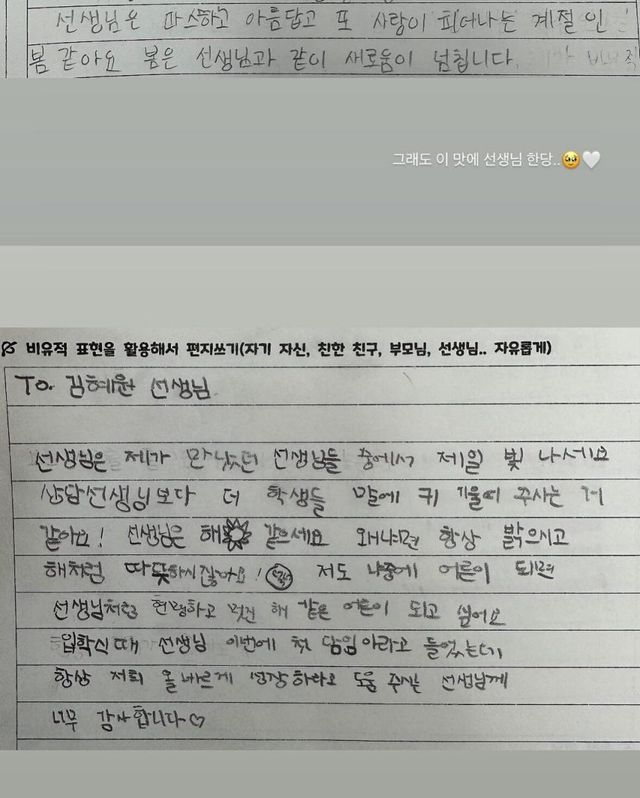 선생님은 따스하고 아름답고 또 사랑이 피어나는 계절 인
봄 같아요 봄은 선생님과 같이 새로움이 넘칩니다.
그래도 이 맛에 선생님 한당..🥹🤍
비유적 표현을 활용해서 편지쓰기(자기 자신, 친한 친구, 부모님, 선생님.. 자유롭게)
To. 김혜원 선생님
선생님은 제가 만났던 선생님들 중에서 제일 빛 나세요
상담선생님보다 더 학생들 말에 귀 기울여 주시는 거
같아요! 선생님은 해 같으세요 왜냐면 항상 밝으시고
해처럼 따뜻하시잖아요! 저도 나중에 어른이 되면
선생님처럼 현명하고 멋진 해 같은 어른이 되고 싶어요
입학식때 선생님 이번에 첫 담임이라고 들었는데
항상 저희 올바르게 성장하라고 도움 주시는 선생님께
너무 감사합니다♡